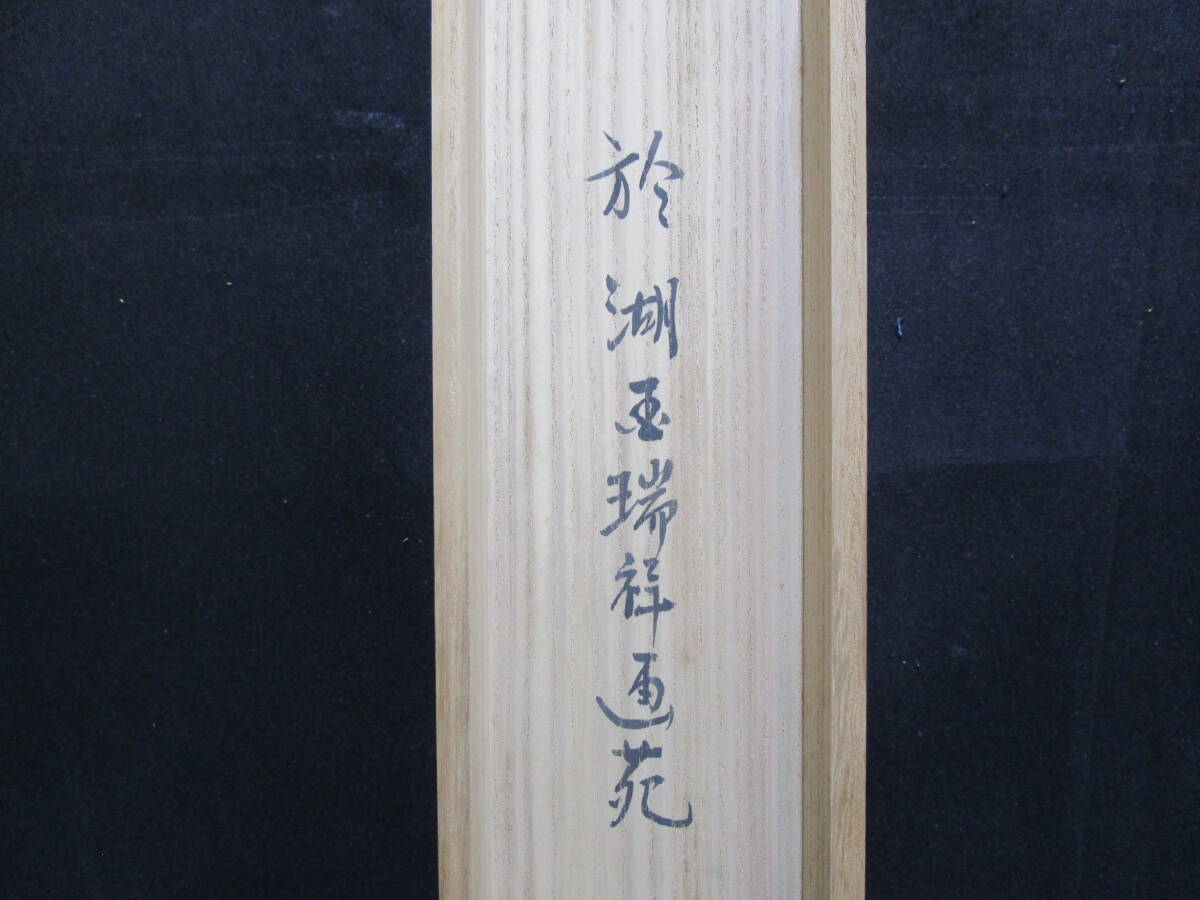 於湖西瑞祥画苑